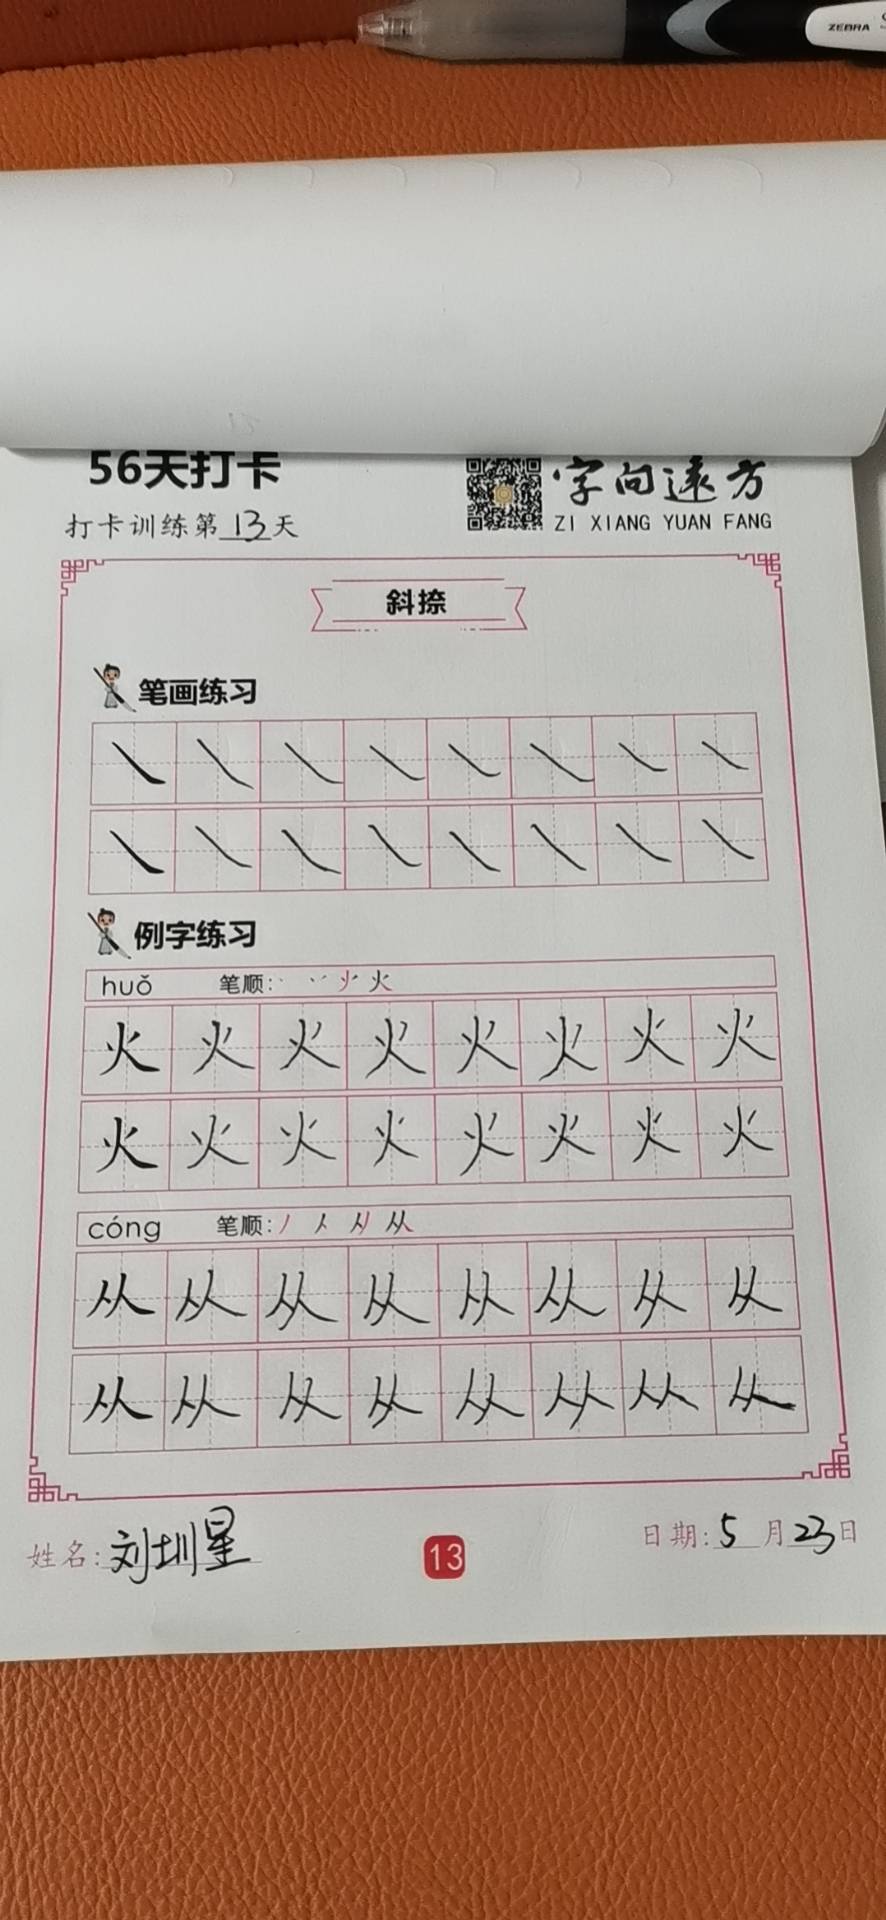 ZEBRA
56天打卡
字向远方
ZI XIANG YUAN FANG
打卡训练第13天
斜捺
笔画练习
㇏ ㇏ ㇏ ㇏ ㇏ ㇏ ㇏ ㇏
㇏ ㇏ ㇏ ㇏ ㇏ ㇏ ㇏ ㇏
例字练习
huǒ 笔顺: 火
火 火 火 火 火 火 火 火
火 火 火 火 火 火 火 火
cóng 笔顺: 丿 人 从
从 从 从 从 从 从 从 从
从 从 从 从 从 从 从 从
姓名: 刘圳星
13
日期: 5月23日